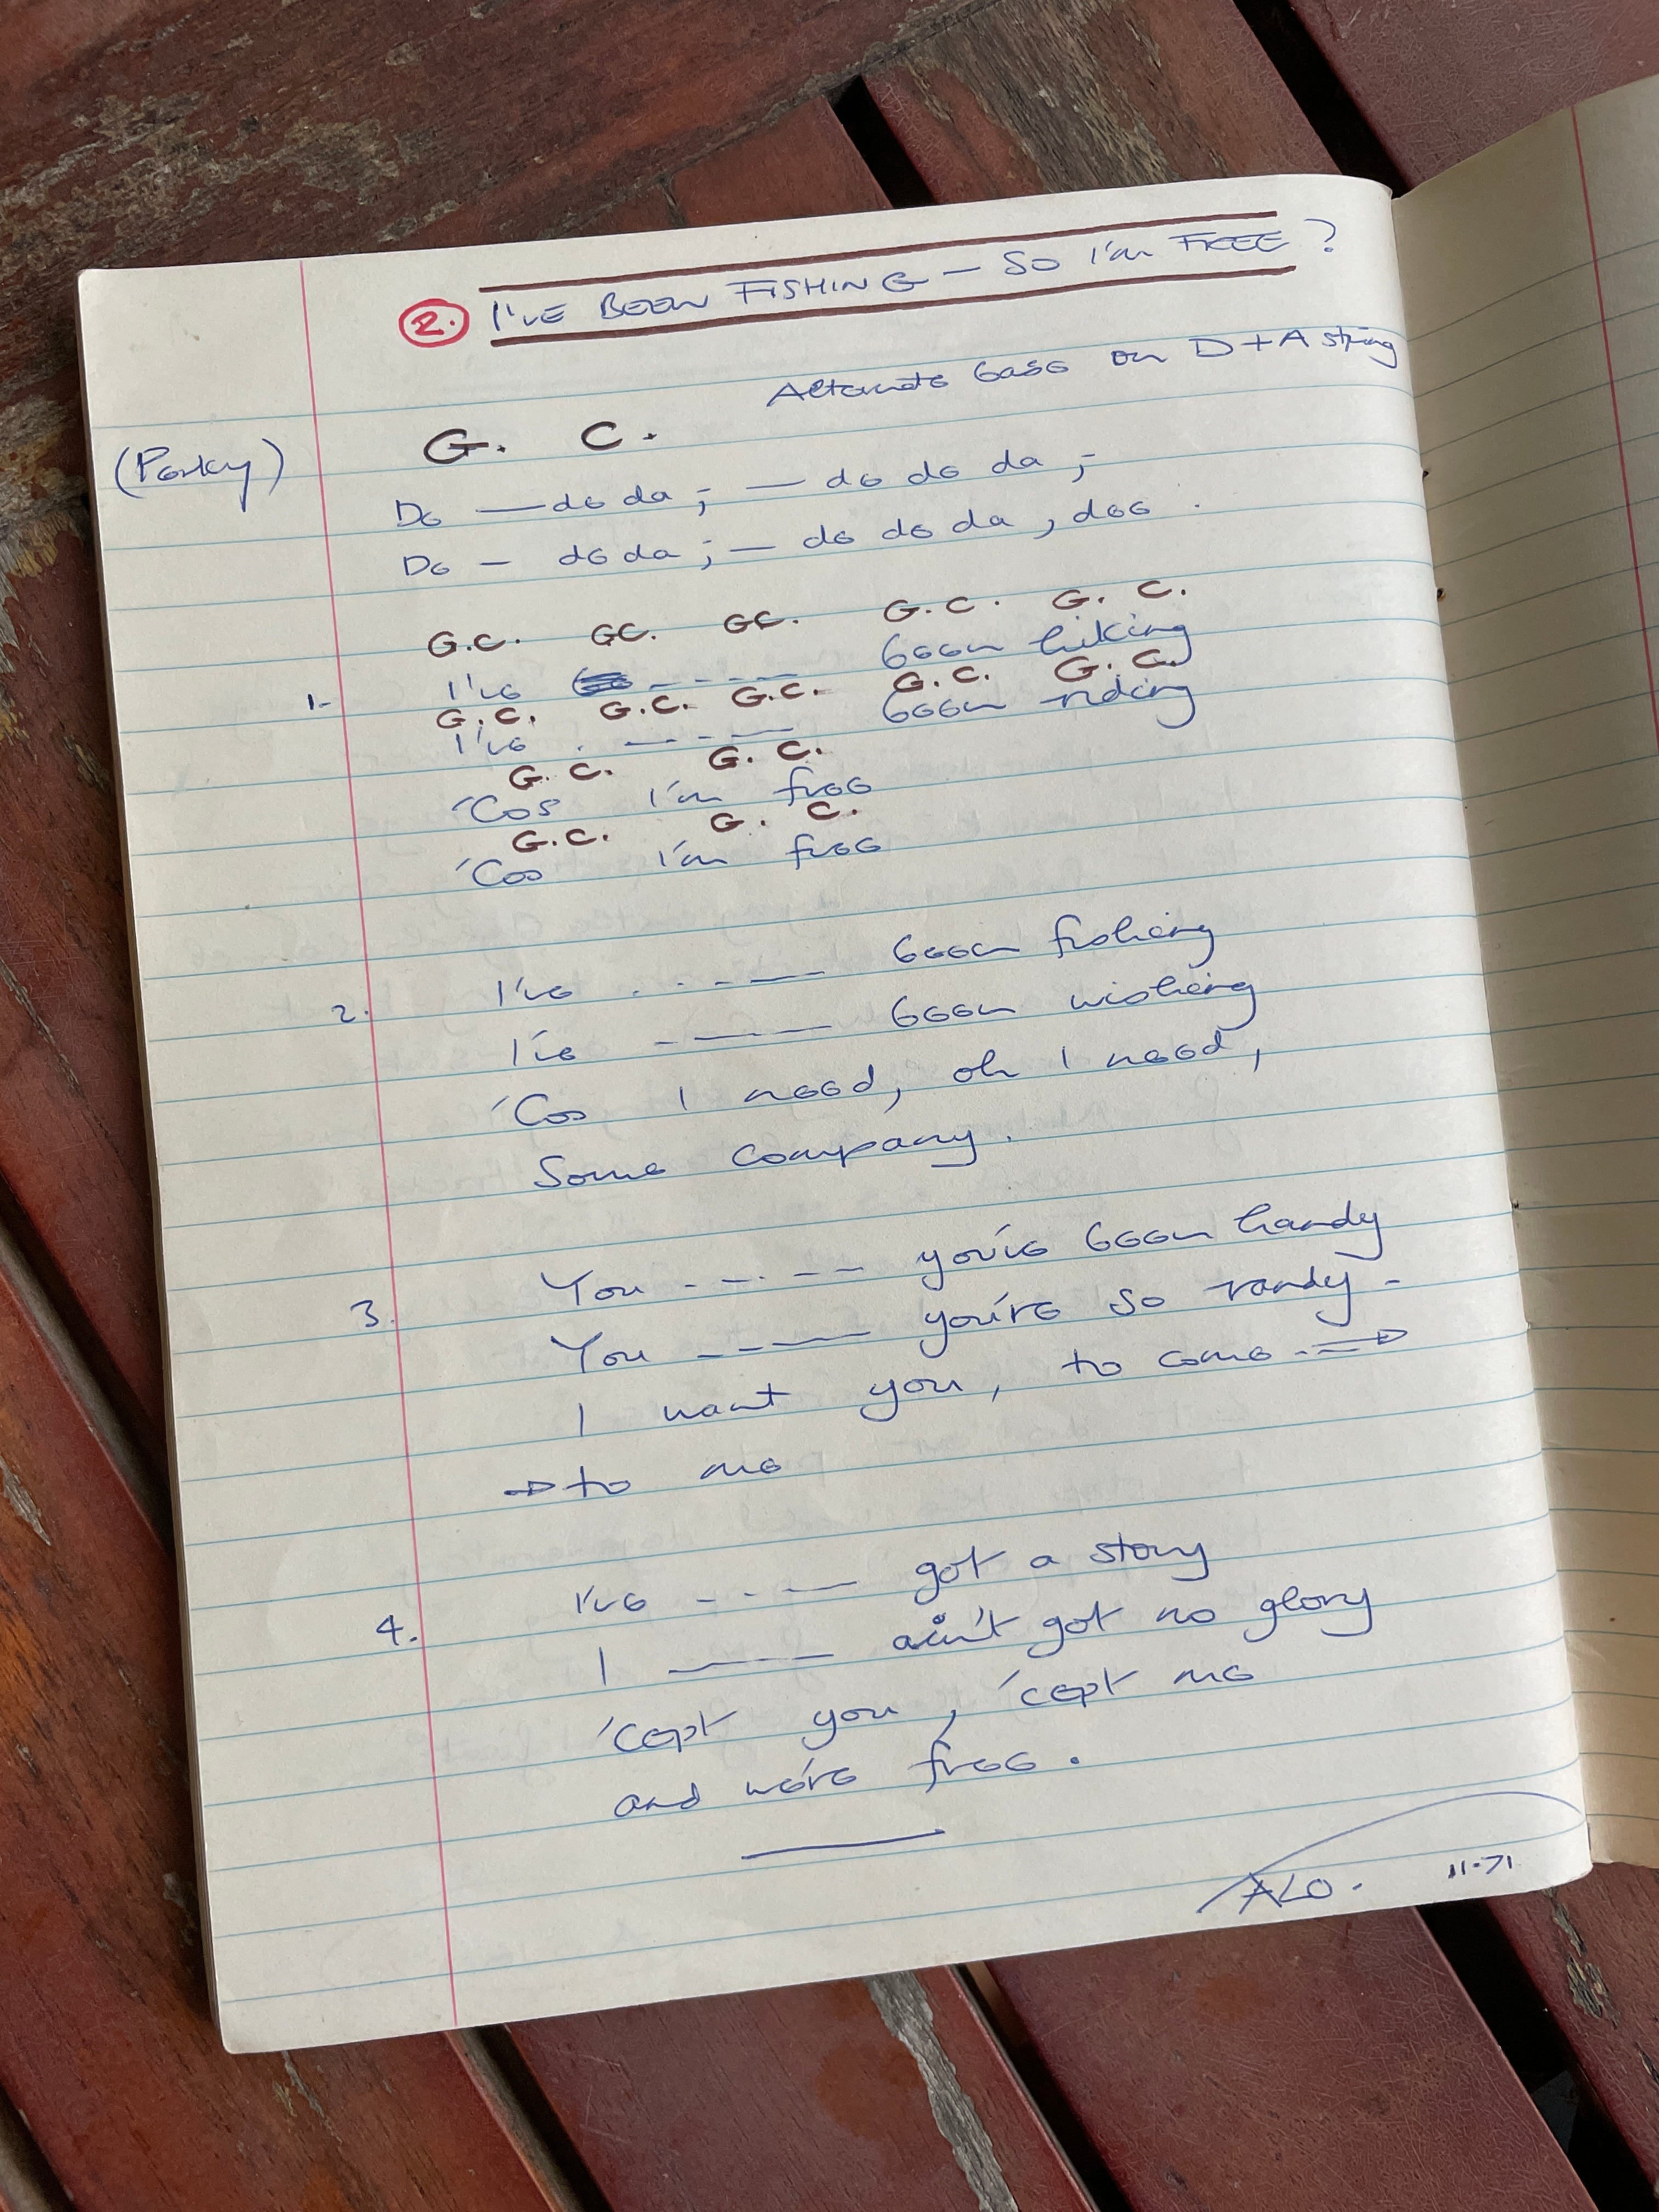 2. I'VE BEEN FISHING — SO I'M FREE ?
Alternate base on D + A string
G. C.
(Perky)
De — de da ; — de de da ;-
De — de da ; — de de da , dee .
G.C. GC. GC. G.C. G. C.
1- I've - - - - been hiking
G.C. G.C. G.C. G.C. G. C.
I've . - - - - been riding
G. C. G. C.
'Cos I'm free
G.C. G. C.
'Cos I'm free
2. I've . . - - - been fishing
I've - - - - been wishing
'Cos I need, oh I need,
Some company.
3. You - - . - - you've been handy
You - - - - you're so randy -
I want you, to come ⇒
⇒ to me
4. I've - - - - got a story
I - - - - ain't got no glory
'cept you, 'cept me
and we're free.
ALO. 11-71